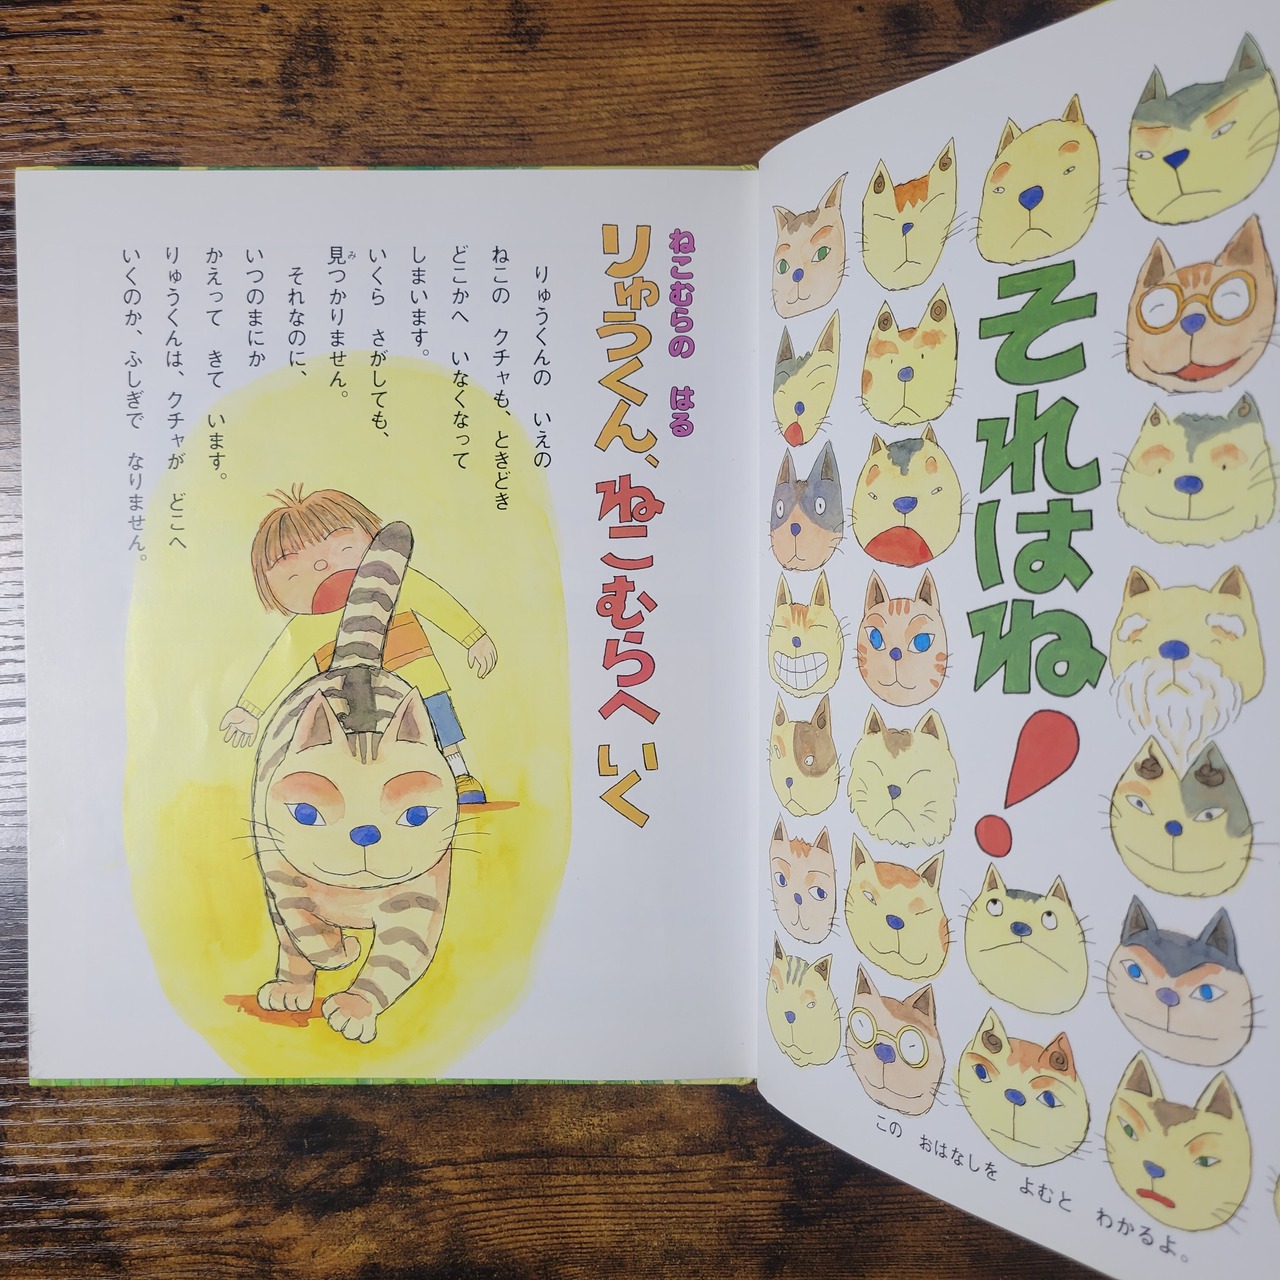 ねこむらの　はる
りゅうくん、ねこむらへ　いく
りゅうくんの　いえの
ねこの　クチャも、ときどき
どこかへ　いなくなって
しまいます。
いくら　さがしても、
見つかりません。
み
それなのに、
いつのまにか
かえって　きて　います。
りゅうくんは、クチャが　どこへ
いくのか、ふしぎで　なりません。
それはね！
この　おはなしを　よむと　わかるよ。